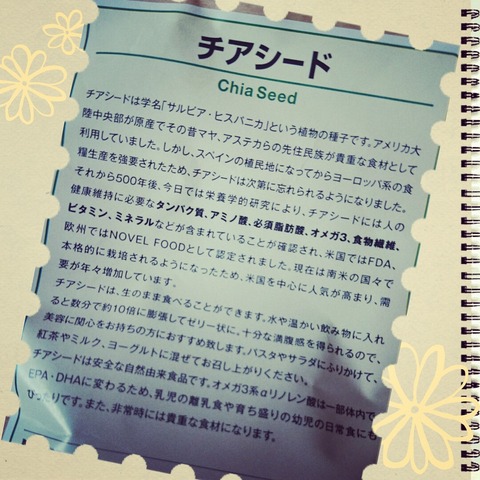 チアシード
Chia Seed
チアシードは学名「サルビア・ヒスパニカ」という植物の種子です。アメリカ大
陸中央部が原産でその昔マヤ、アステカらの先住民族が貴重な食材として
利用していました。しかし、スペインの植民地になってからヨーロッパ系の食
糧生産を強要されたため、チアシードは次第に忘れられるようになりました。
それから500年後、今日では栄養学的研究により、チアシードには人の
健康維持に必要なタンパク質、アミノ酸、必須脂肪酸、オメガ3、食物繊維、
ビタミン、ミネラルなどが含まれていることが確認され、米国ではFDA、
欧州ではNOVEL FOODとして認定されました。現在は南米の国々で
本格的に栽培されるようになったため、米国を中心に人気が高まり、需
要が年々増加しています。
チアシードは、生のまま食べることができます。水や温かい飲み物に入れ
ると数分で約10倍に膨張してゼリー状に。十分な満腹感を得られるので、
美容に関心をお持ちの方におすすめ致します。パスタやサラダにふりかけて、
紅茶やミルク、ヨーグルトに混ぜてお召し上がりください。
チアシードは安全な自然由来食品です。オメガ3系αリノレン酸は一部体内で
EPA・DHAに変わるため、乳児の離乳食や育ち盛りの幼児の日常食にも
ぴったりです。また、非常時には貴重な食材になります。